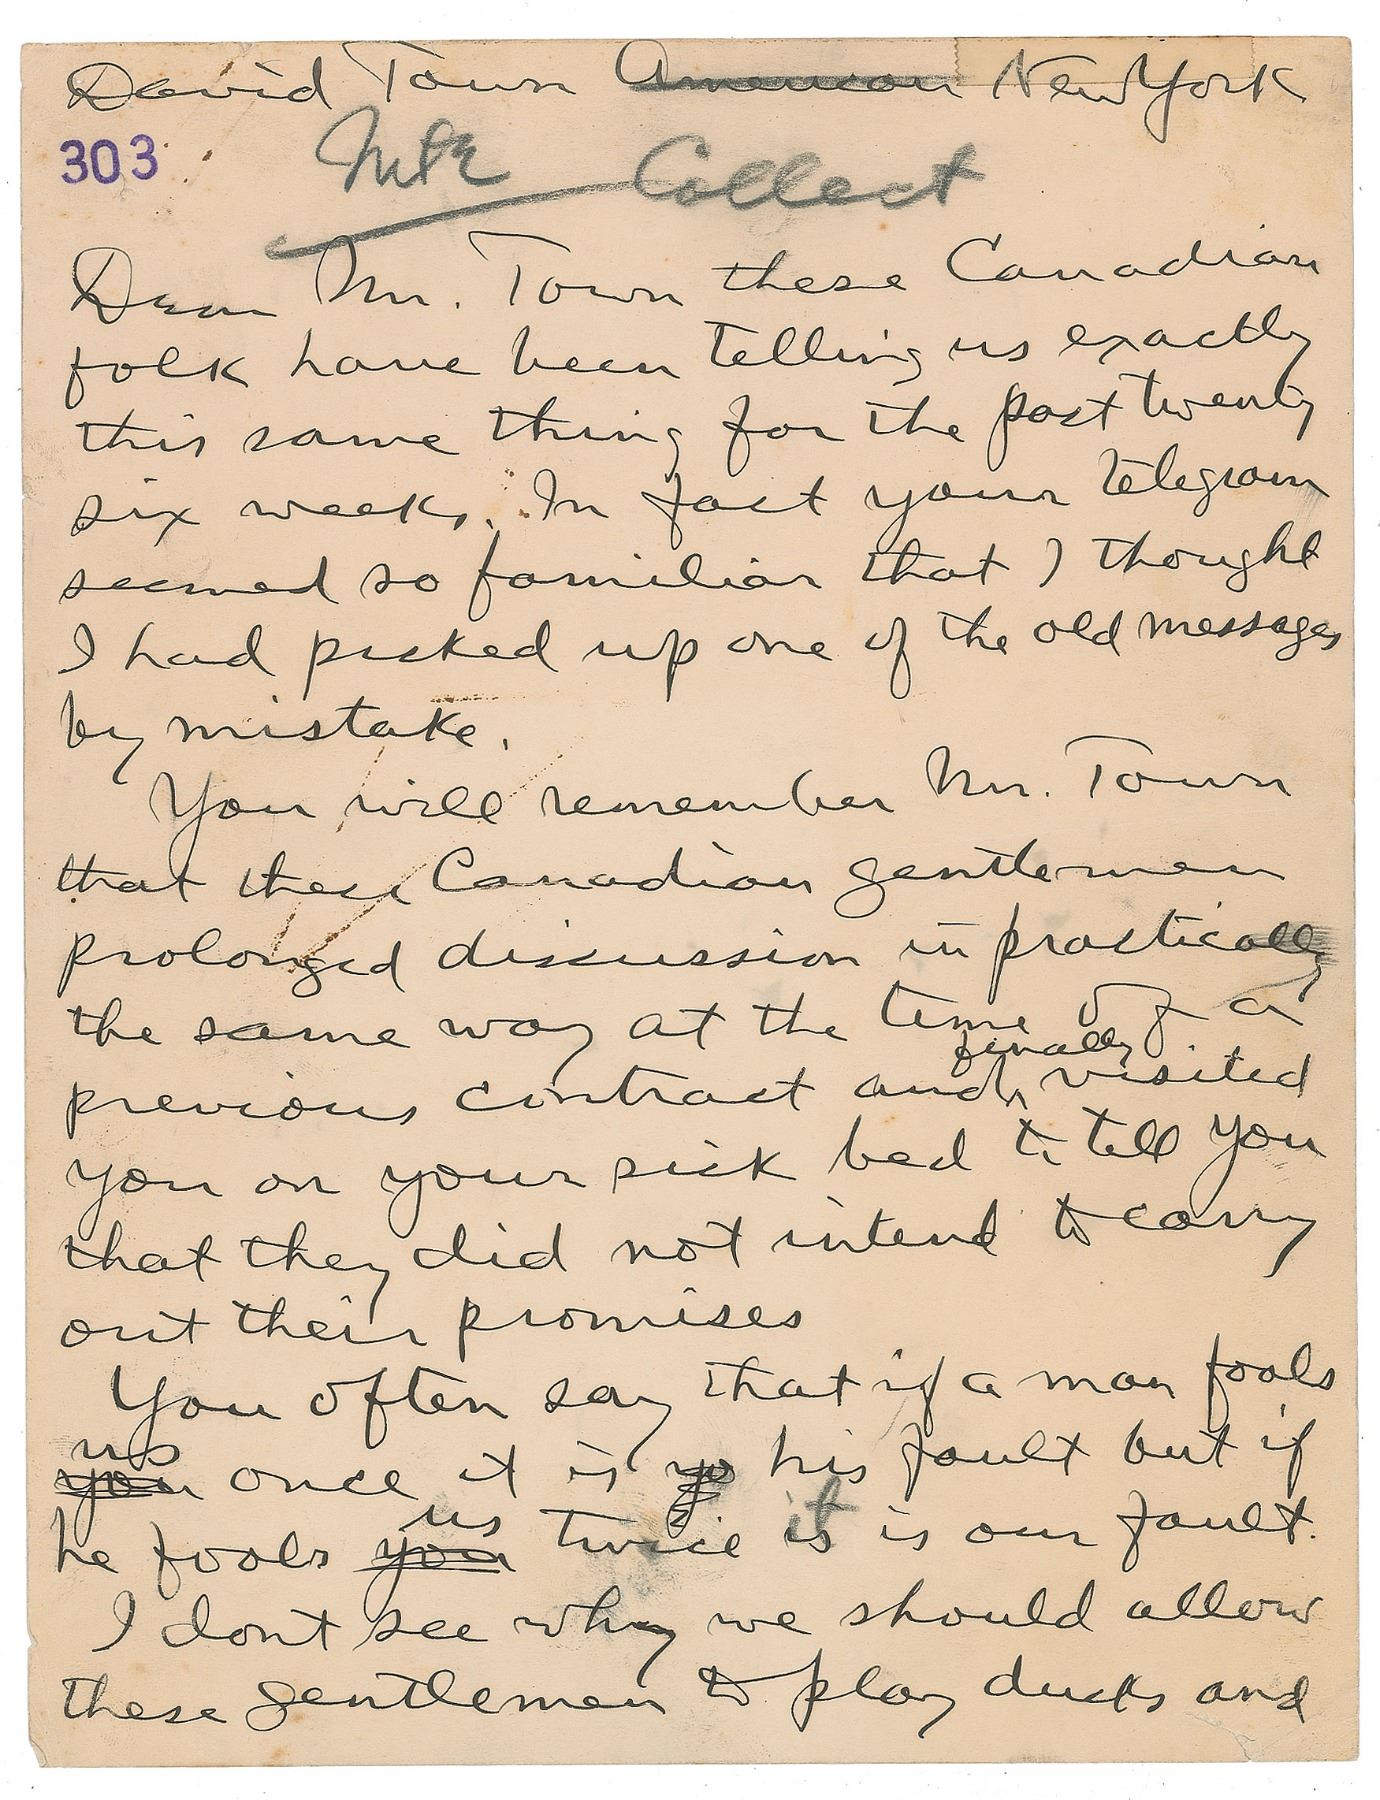 David Town American New York
303
Collect
Dear Mr. Town these Canadian
folk have been telling us exactly
this same thing for the past twenty
six weeks. In fact your telegram
seemed so familiar that I thought
I had picked up one of the old messages
by mistake.
You will remember Mr. Town
that these Canadian gentlemen
prolonged discussion in practically
the same way at the time of a
finally
previous contract and visited
you on your sick bed to tell you
that they did not intend to carry
out their promises
You often say that if a man fools
us
you once it is yo his fault but if
us
he fools you twice it is our fault.
I dont see why we should allow
these gentlemen to play ducks and